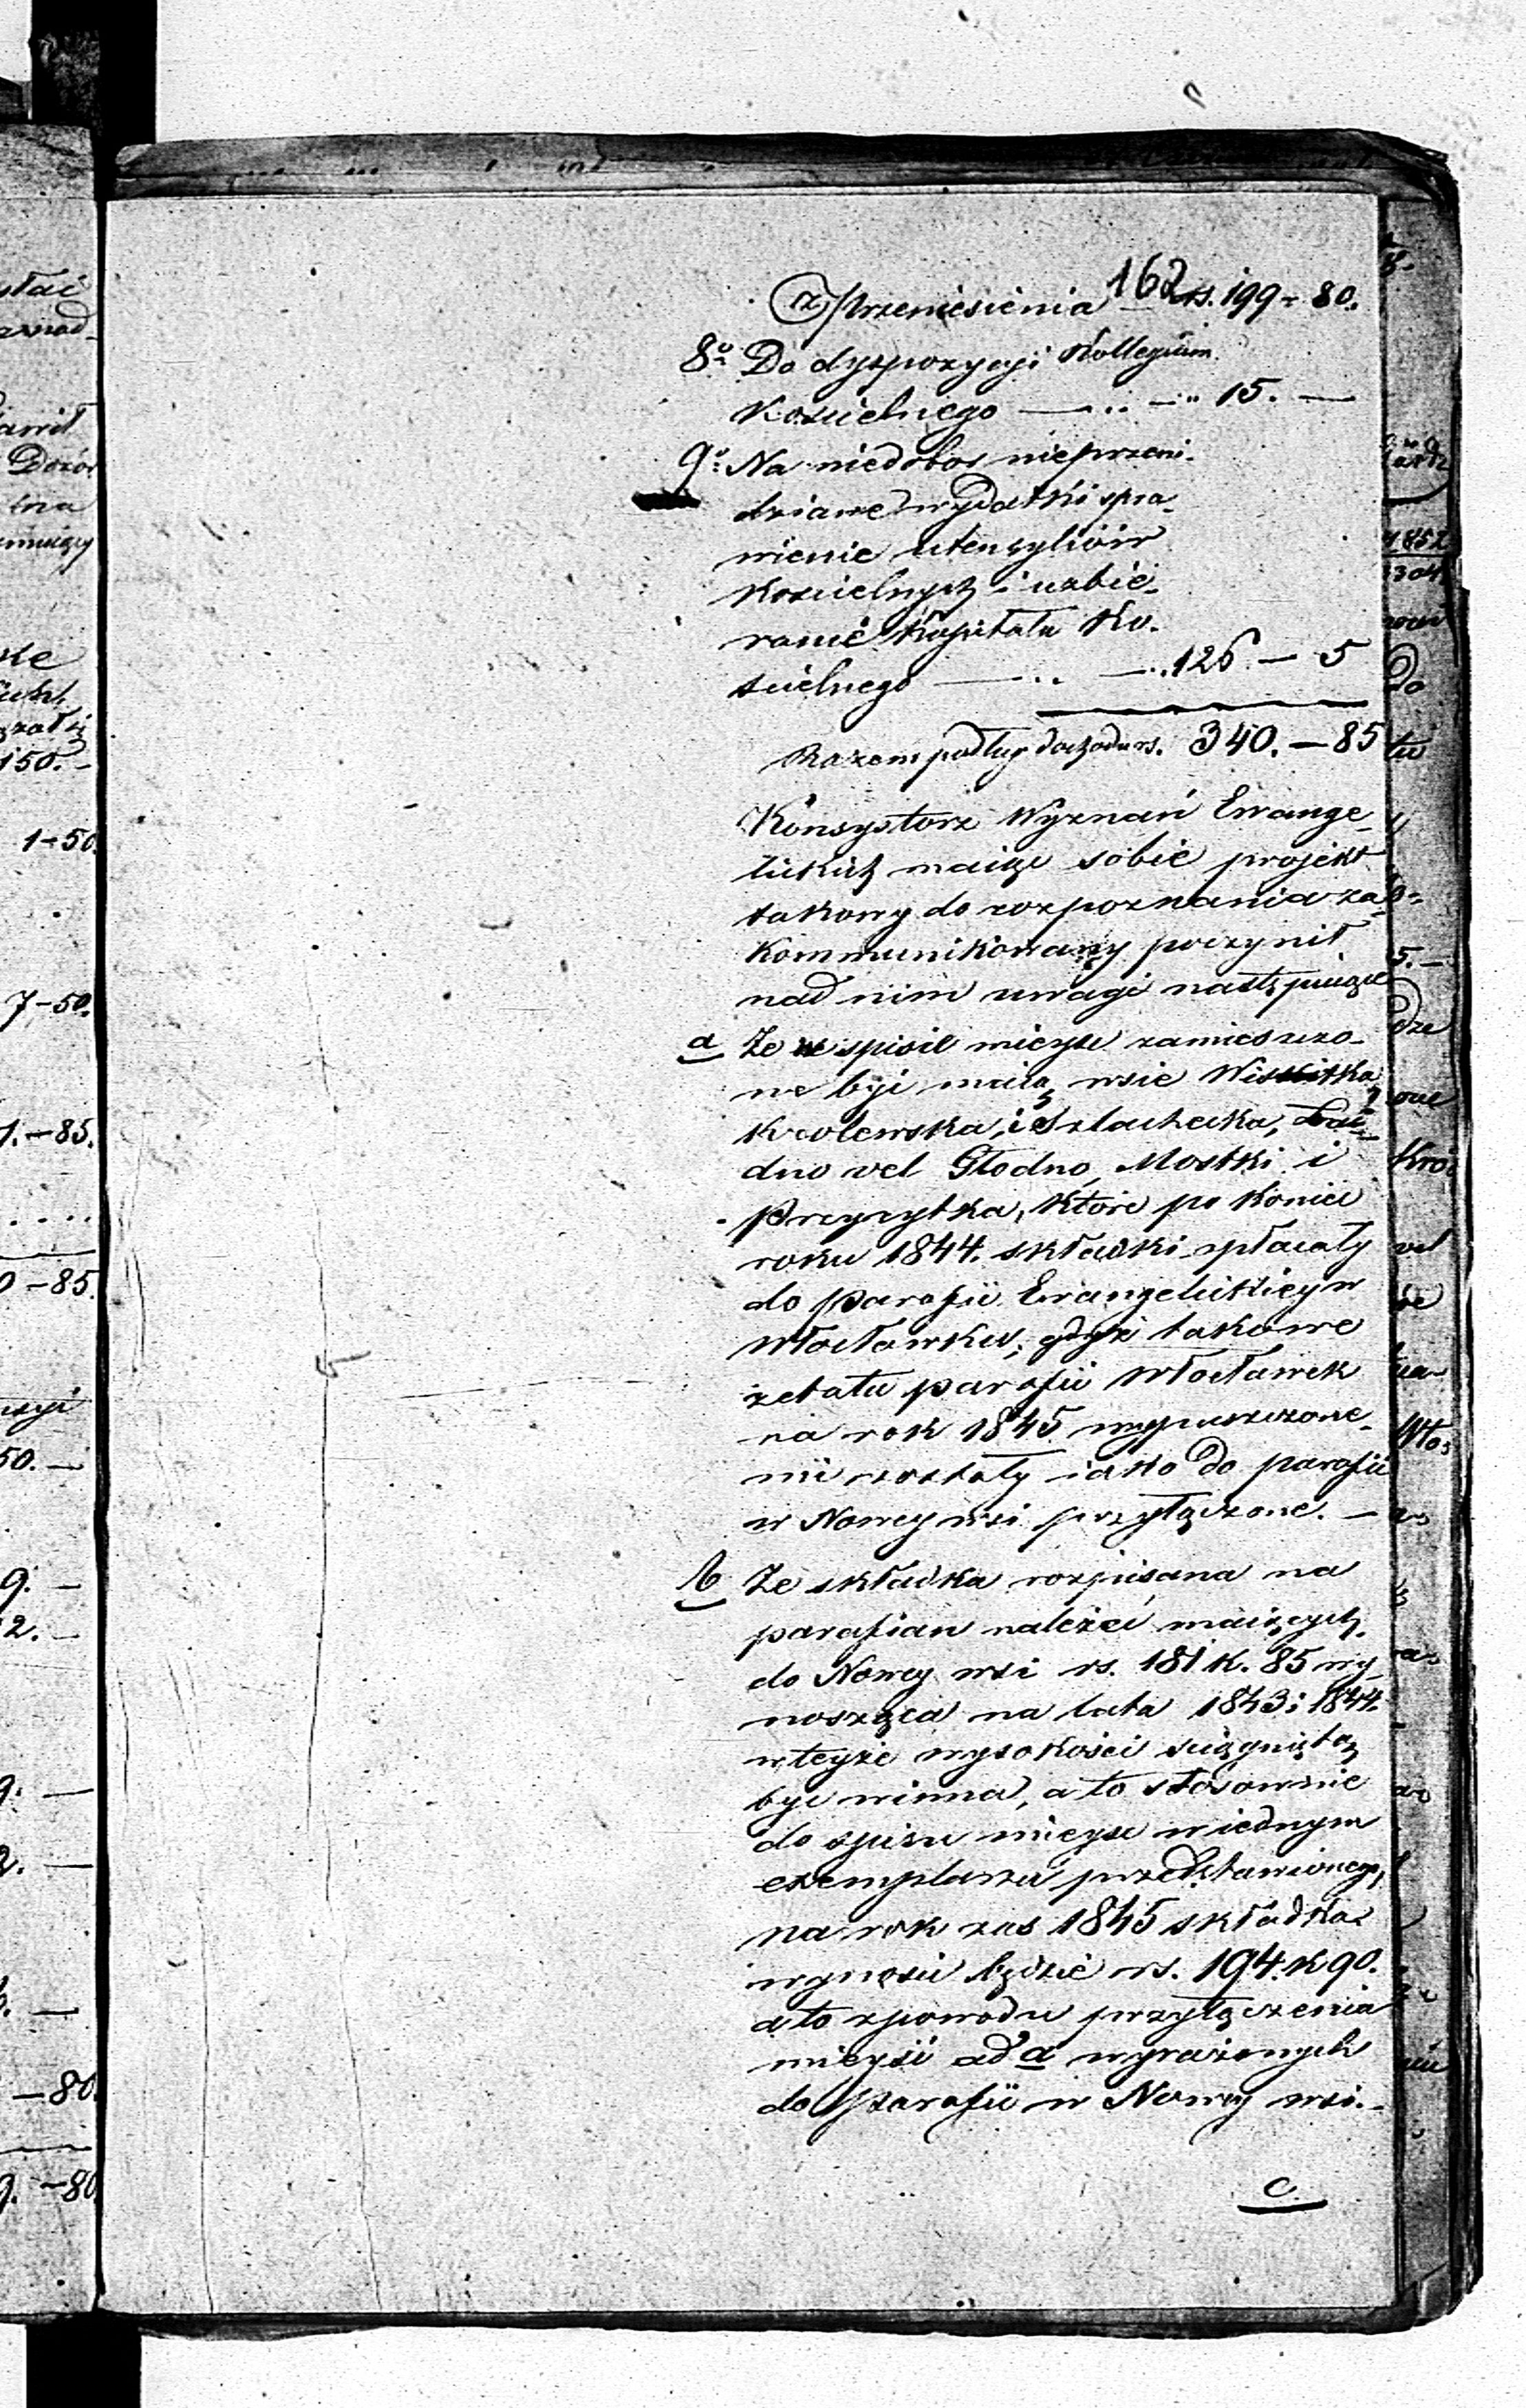 162
z Przeniesienia rs. 199 - 80.
8o Do dyspozycyi Kollegium
Kościelnego — .. — .. 15. —
9o Na niedobor nieprzewi-
dziane wydatki spra-
wienie utensyliów
Kościelnych i uzbie-
ranie Kapitału Ko-
ścielnego — .. — .. 126 — 5
Razem podług dochodu rs. 340. — 85
Konsystorz Wyznań Ewange-
lickich maiąc sobie projekt
takowy do rozpoznania za-
kommunikowany poczynił
nad nim uwagi następuiące
a Że w spisie mieysc zamieszczo-
ne być maią wsie Wistka
Krolewska, i Szlachecka,
dno vel Głodno, Mostki i
Przyrytka, które po koniec
roku 1844. składki opłacały
do parafii Ewangelickiey w
Włocławku; gdyż takowe
zetatu parafii Włocławek
na rok 1845 wypuszczone-
mi zostały iako do parafii
w Nowey wsi przyłączone. —
b Że składka rozpisana na
parafian należeć maiących
do Nowey wsi rs. 181 k. 85 wy-
nosząca na lata 1843 i 1844.
w teyże wysokości ściągniętą
być winna, a to stosownie
do spisu mieysc w iednym
exemplarzu przedstawionego,
na rok zas 1845 składka
wynosić będzie rs. 194. k 90.
a to zpowodu przyłączenia
mieysc ad a wyrażonych
do Parafii w Nowey wsi. —
c.